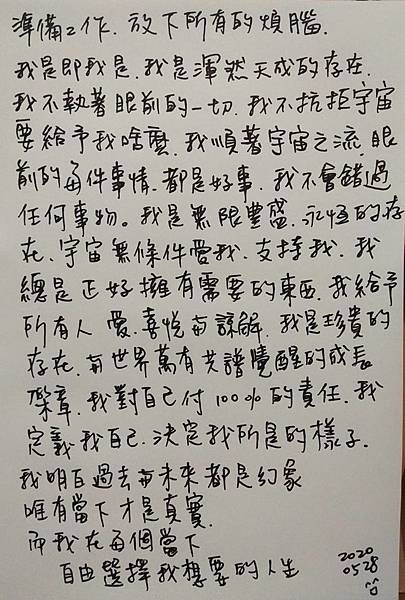 準備工作. 放下所有的煩腦.
我是即我是. 我是渾然天成的存在.
我不執著眼前的一切. 我不抗拒宇宙
要給予我啥麼. 我順著宇宙之流 眼
前的每件事情. 都是好事. 我不會錯過
任何事物。我是無限豐盛. 永恆的存
在. 宇宙無條件愛我. 支持我. 我
總是正好擁有需要的東西. 我給予
所有人 愛. 喜悅与諒解. 我是珍貴的
存在. 与世界萬有共譜覺醒的成長
樂章. 我對自己付100%的責任. 我
定義我自己. 決定我所是的樣子.
我明白過去与未來都是幻象
唯有當下才是真實.
而我在每個當下
自由選擇我想要的人生
2020
0528